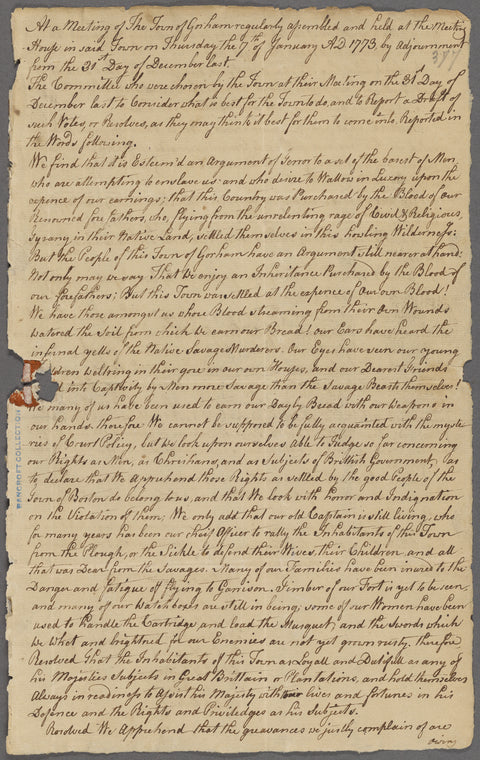 At a Meeting of The Town of Gorham regularly assembled and held at the Meeting
House in said Town on Thursday the 7th of January A.D. 1773, by Adjournment
from the 31st Day of December last
The Committee who were chosen by the Town at their Meeting on the 31st Day of
December last to Consider what is best for the Town to do, and to Report a Draft of
such Votes, or Resolves, as they may think it best for them to come into, Reported in
the Words following.
We find that it is Esteem'd an Argument of Terror to a set of the basest of Men,
who are attempting to enslave us and who desire to Wallow in Luxory upon the
expence of our earnings; that this Country was Purchased by the Blood of our
Renowned forefathers, who, flying from the unrelenting rage of Civil & Religious,
Tyrany in their Native Land, settled themselves in this howling Wilderness:
But the People of this Town of Gorham have an Argument still nearer at hand:
Not only may we say That We enjoy an Inheritance Purchased by the Blood of
our forefathers; But this Town was settled at the expence of Our own Blood!
We have those amongst us whose Blood streaming from their own Wounds
watered the Soil from which we earn our Bread! our Ears have heard the
infernal yells of the Native Savage Murderers. Our Eyes have seen our young
Children weltring in their gore in our own Houses, and our Dearest Friends
into Captivity by Men more Savage than the Savage Beasts themselves!
We many of us have been used to earn our Dayly Bread with our Weapons in
our hands. therefore We cannot be supposed to be fully acquainted with the myste-
ries of Court Policy, but we look upon ourselves Able to Judge so far concerning
our Rights as Men, as Christians, and as Subjects of British Government, as
to declare that We Apprehend those Rights as settled by the good People of the
Town of Boston do belong to us, and that We look with Horror and Indignation
on the Violation of them; We only add that our old Captain is still living, who
for many years has been our chief Officer to rally the Inhabitants of this Town
from the Plough, or the Sickle to defend their Wives, their Children, and all
that was Dear from the Savages. Many of our Families have been inured to the
Danger and fatigue of flying to Garrison. Timber of our Fort is yet to be seen,
and many of our Watch boxes are still in being; some of our Women have been
used to handle the Cartridge and load the Musquet, and the Swords which
we Whet and brightned for our Enemies are not yet grown rusty. therefore
Resolved That the Inhabitants of this Town as Loyall and Dutifull as any of
his Majesties Subjects in Great Brittain or Plantations, and hold themselves
Always in readiness to Assist his Majesty with their lives and fortunes in his
Defence and the Rights and Priviledges as his Subjects.
Resolved We Apprehend that the greavances we justly complain of are
owing
BANCROFT COLLECTION